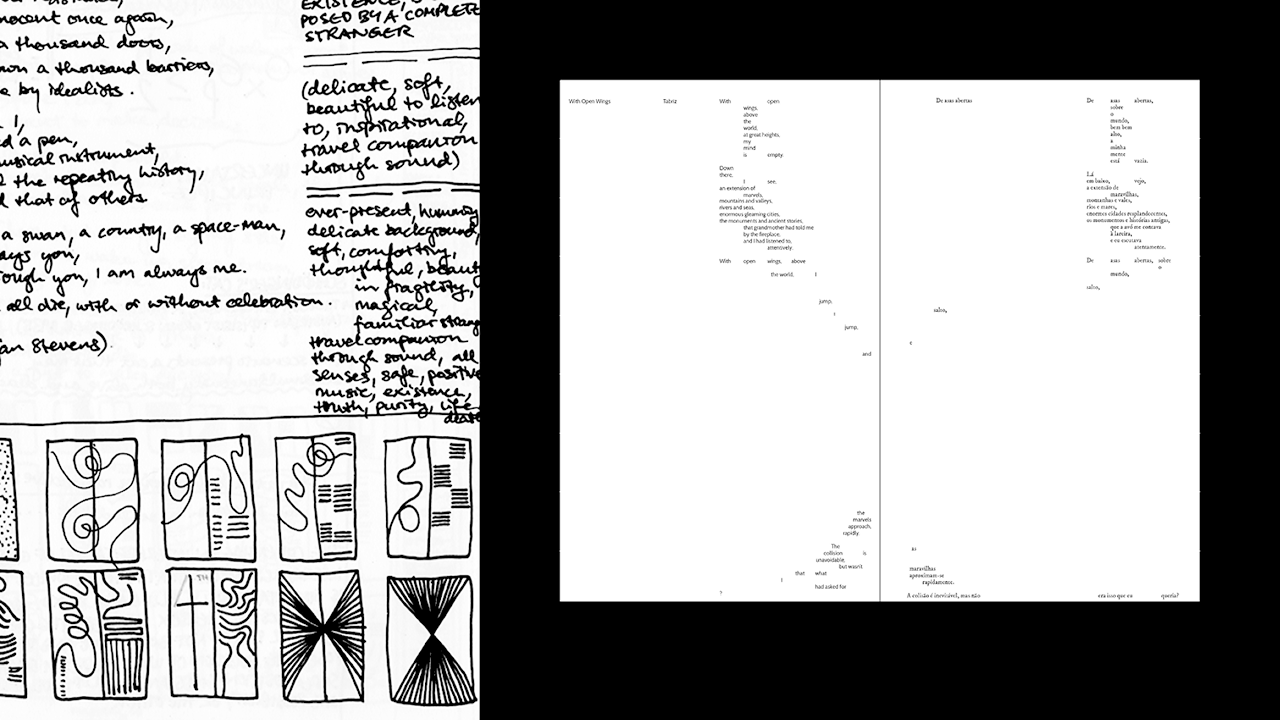 nocent once again,
a thousand doors,
own a thousand barriers,
e by idealists.
I,
d a pen,
musical instrument,
l the repeating history,
d that of others.
a swan, a country, a space-man,
ays you,
rough you, I am always me.
all die, with or without celebration.
an Stevens).
EXISTENCE,
POSED BY A COMPLETE
STRANGER
(delicate, soft,
beautiful to listen
to, inspirational,
travel companion
through sound)
ever-present, humming
delicate background,
soft, comforting,
thoughtful, beaut
in fragility,
magical,
familiar strang
travel companion
through sound, all
senses, safe, positive
music, existence,
truth, purity, life
death
With Open Wings
Tabriz
With open
wings,
above
the
world,
at great heights,
my
mind
is empty.
Down
there,
I see,
an extension of
marvels,
mountains and valleys,
rivers and seas,
enormous gleaming cities,
the monuments and ancient stories,
that grandmother had told me
by the fireplace,
and I had listened to,
attentively.
With open wings, above
the world, I
jump,
I
jump,
and
the
marvels
approach,
rapidly.
The
collision is
unavoidable,
but wasn't
that what
I
had asked for
?
De asas abertas
De asas abertas,
sobre
o
mundo,
bem bem
alto,
a
minha
mente
está vazia.
Lá
em baixo, vejo,
a extensão de
maravilhas,
montanhas e vales,
rios e mares,
enormes cidades resplandecentes,
os monumentos e histórias antigas,
que a avó me contava
à lareira,
e eu escutava
atentamente.
De asas abertas, sobre
o
mundo,
salto,
salto,
e
as
maravilhas
aproximam-se
rapidamente.
A colisão é inevitável, mas não
era isso que eu queria?